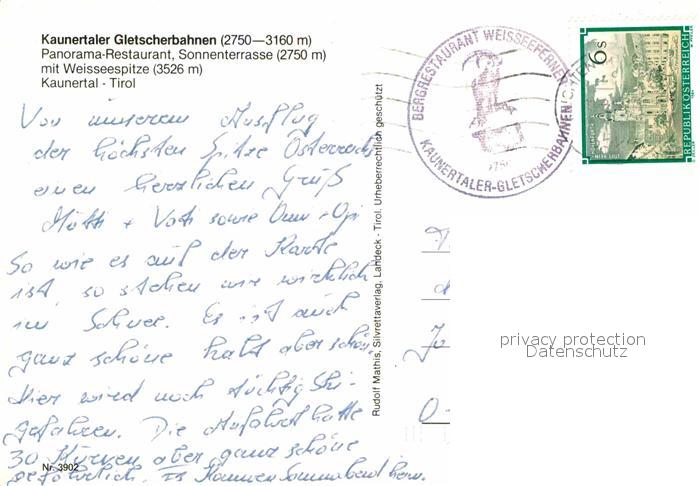 Kaunertaler Gletscherbahnen (2750—3160 m)
Panorama-Restaurant, Sonnenterrasse (2750 m)
mit Weisseespitze (3526 m)
Kaunertal - Tirol
Von unserem Ausflug
der höchsten Spitze Österreichs
einen herzlichen Gruß
Mutti + Vati sowie Omi + Opi
So wie es auf der Karte
ist, so stehen wir wirklich
im Schnee. Es ist auch
ganz schöne kalt aber schön
Hier wird noch tüchtig Ski-
gefahren. Die Auffahrt hatte
30 Kurven aber ganz schöne
gefährlich. Es kommen Sonnabend heim.
Nr. 3902
Rudolf Mathis, Silvrettaverlag, Landeck - Tirol. Urheberrechtlich geschützt
BERGRESTAURANT WEISSEEFERNER
KAUNERTALER-GLETSCHERBAHNEN
2750
6 S
REPUBLIK ÖSTERREICH
privacy protection
Datenschutz